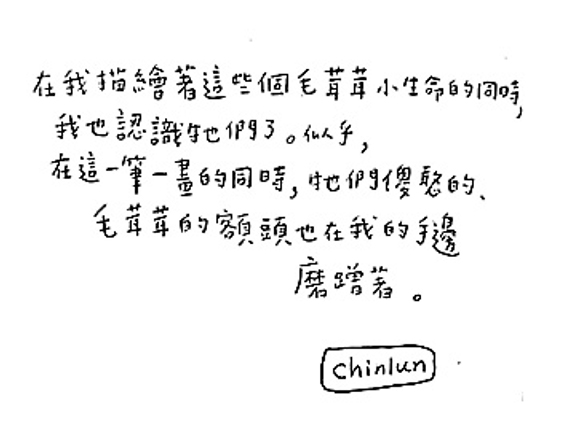 在我描繪著這些個毛茸茸小生命的同時,
我也認識牠們了。似乎,
在這一筆一畫的同時,牠們傻憨的、
毛茸茸的額頭也在我的手邊
磨蹭著。
chinlun